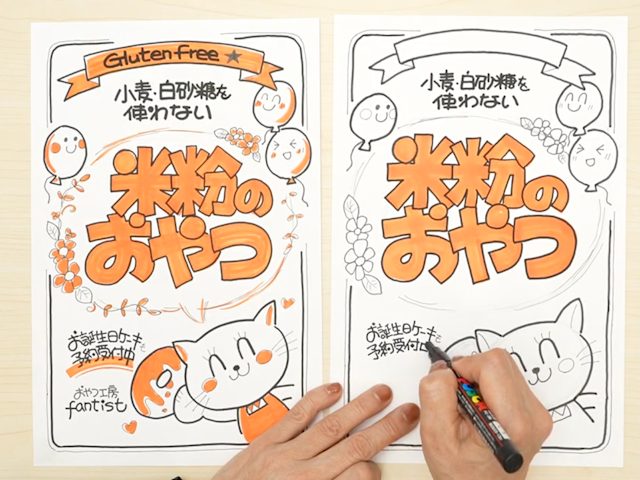 Gluten free ★
小麦・白砂糖を
使わない
米粉の
おやつ
お誕生日ケーキも
予約受付中
おやつ工房
fantist
小麦・白砂糖を
使わない
米粉の
おやつ
お誕生日ケーキを
予約受付中